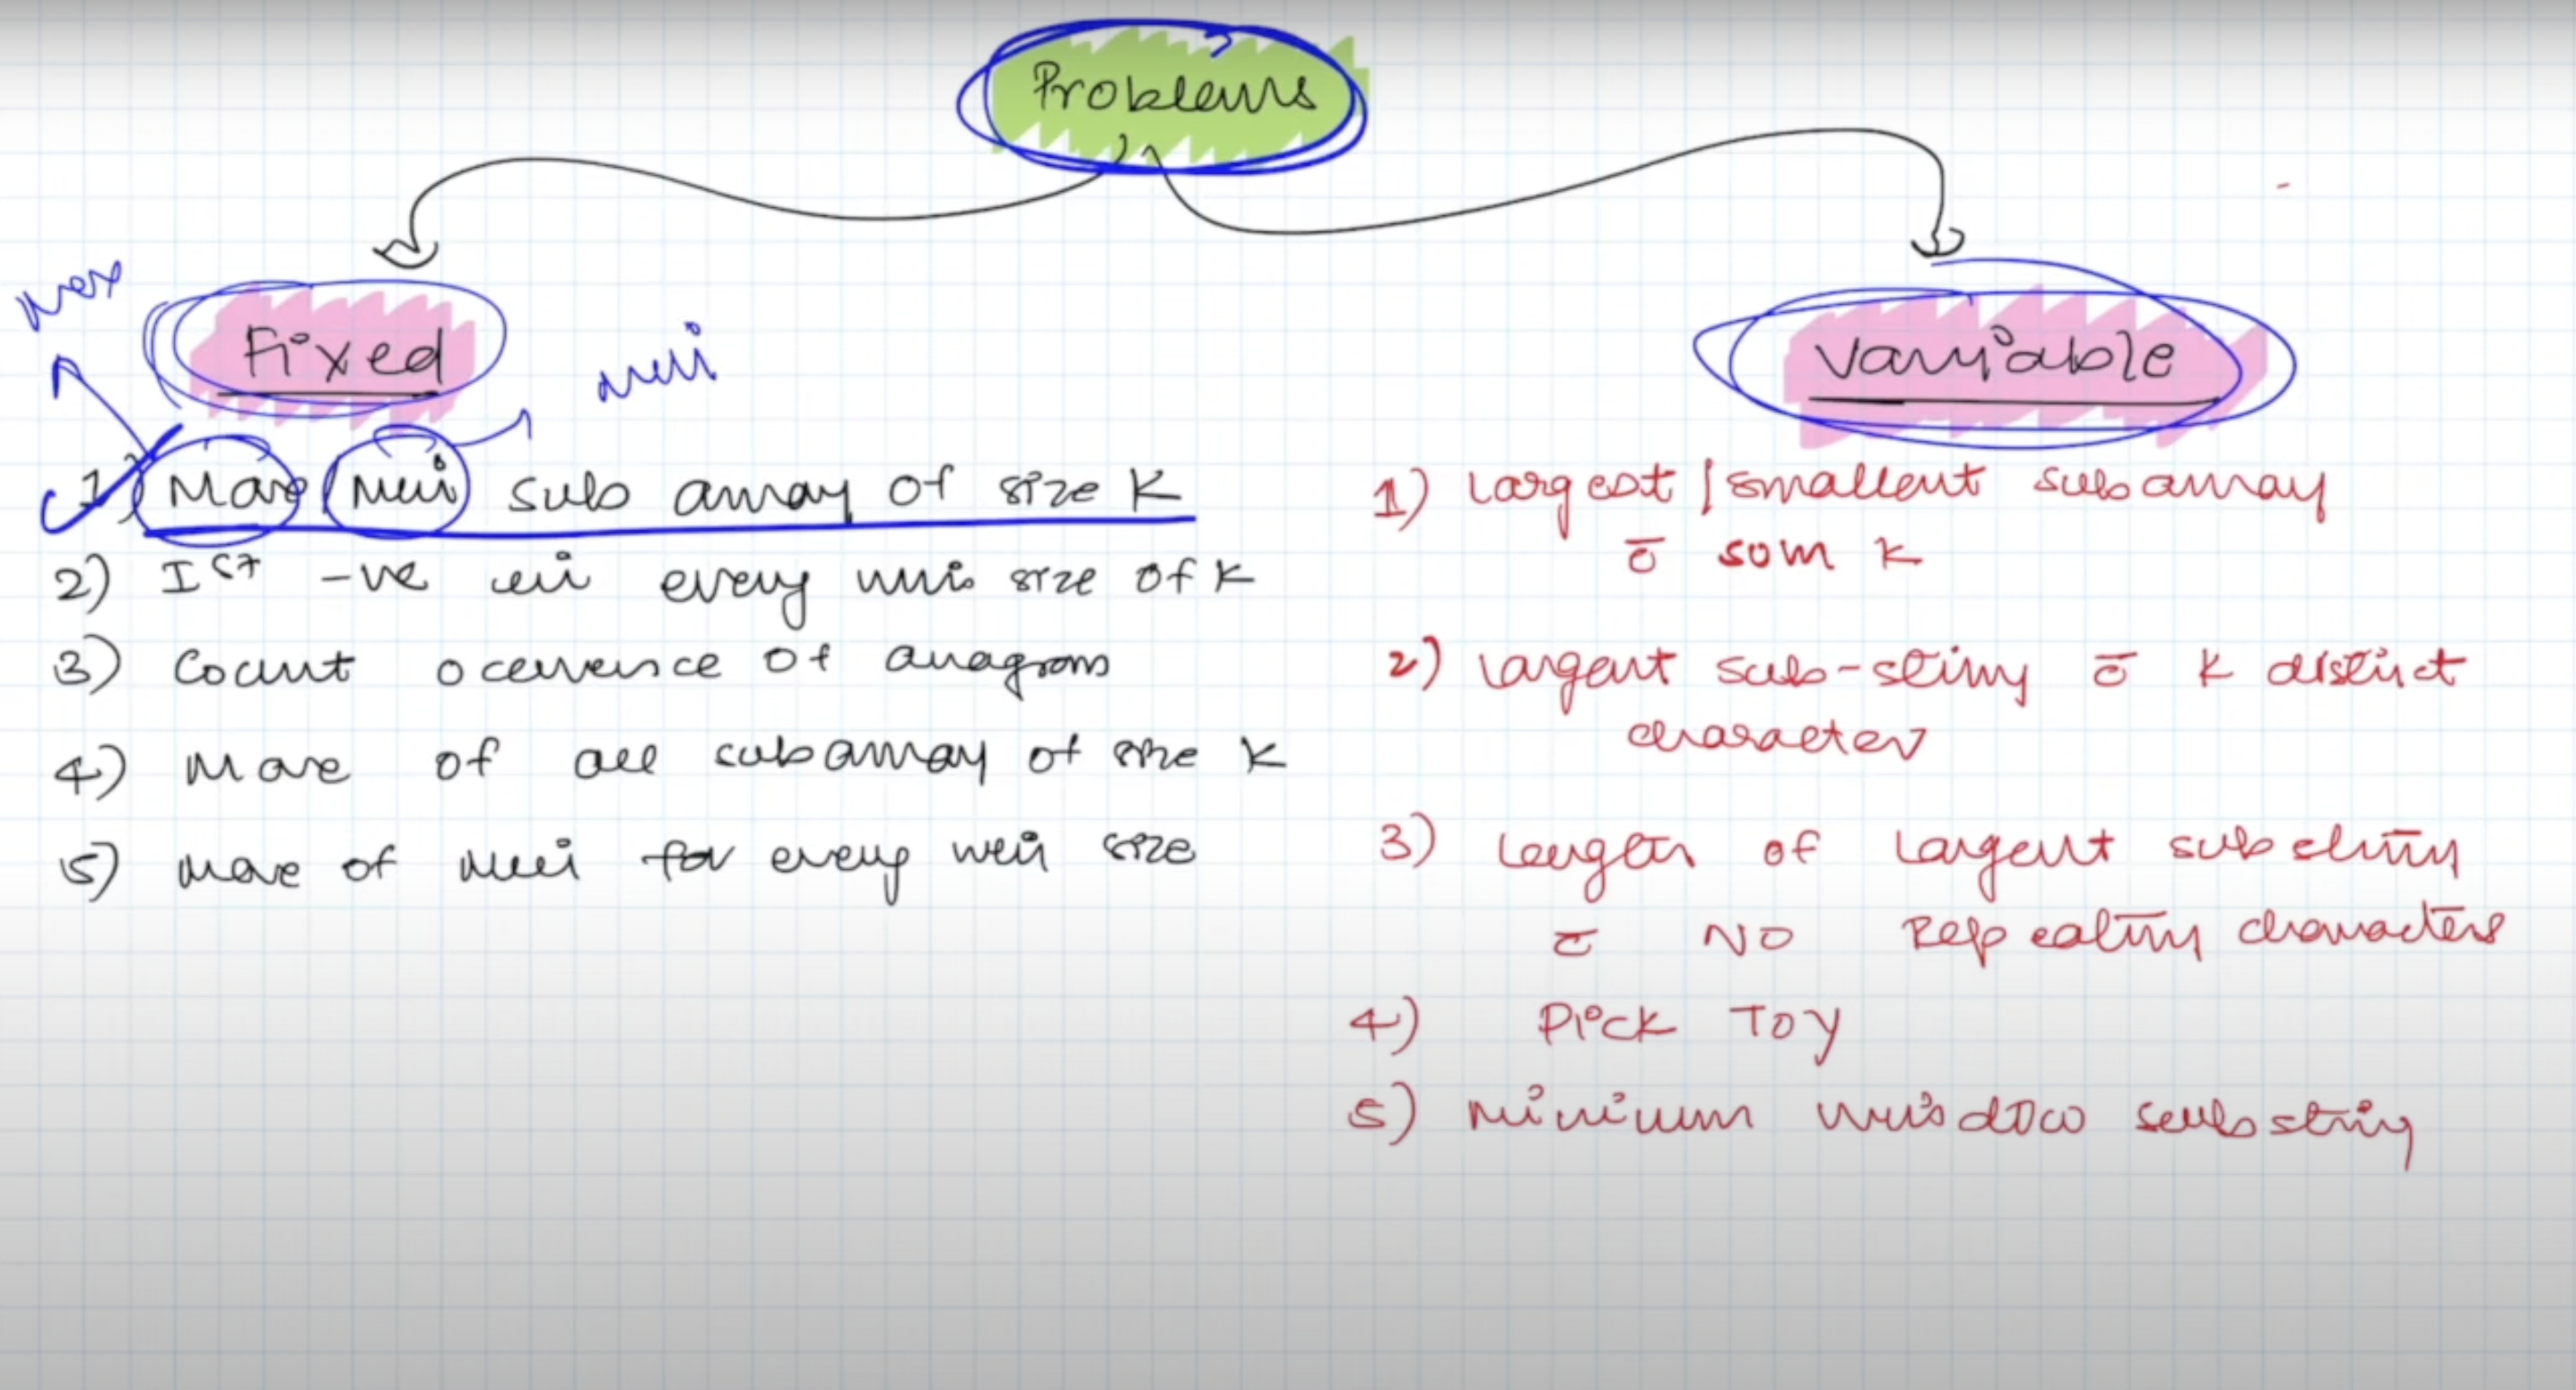 Problems
Fixed
Variable
Max
Min
1) Max/Min sub array of size K
2) Ist -ve in every win size of K
3) Count occurence of anagram
4) Max of all subarray of size K
5) Max of Min for every win size
1) Largest/smallest subarray
c̄ sum K
2) Largest sub-string c̄ K distinct
character
3) Length of Largest substring
c̄ NO Repeating characters
4) Pick Toy
5) Minimum window substring